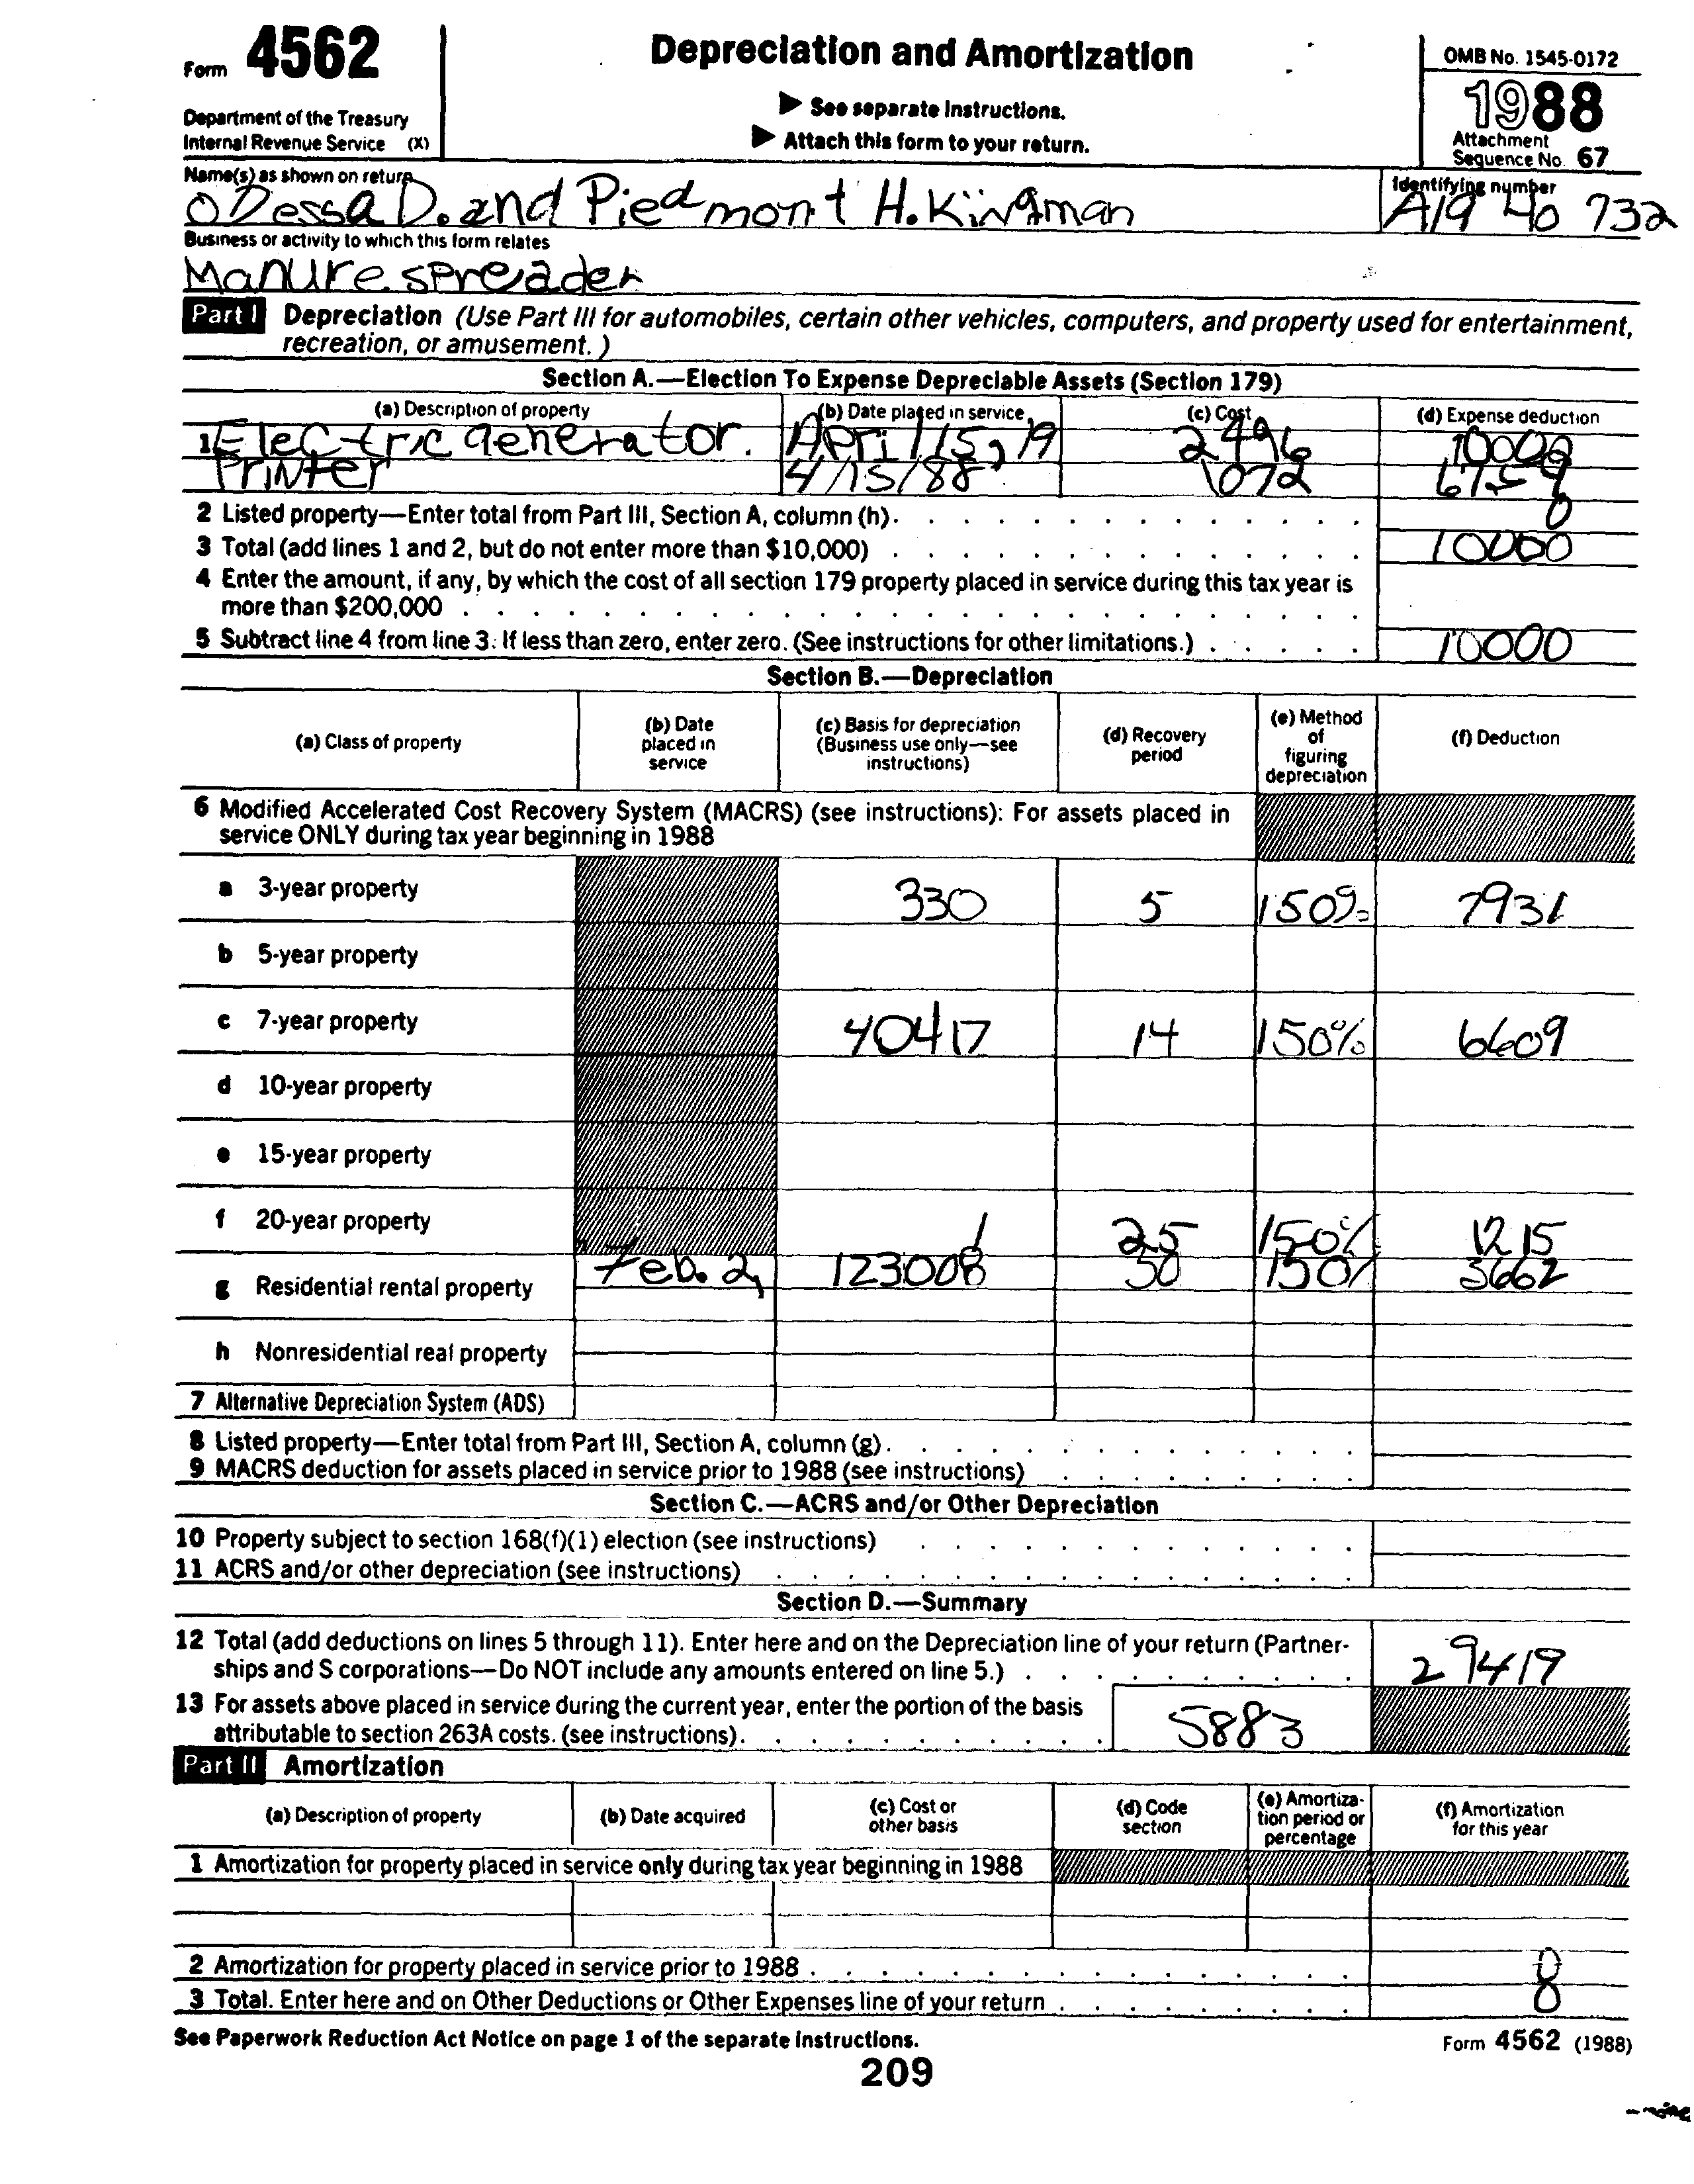 Form 4562
Department of the Treasury
Internal Revenue Service (X)
Depreciation and Amortization
▶ See separate Instructions.
▶ Attach this form to your return.
OMB No. 1545-0172
1988
Attachment
Sequence No. 67
Name(s) as shown on return
ODessa D. and Piedmont H. Kingman
Identifying number
A19 40 732
Business or activity to which this form relates
Manure spreader
Part I Depreciation (Use Part III for automobiles, certain other vehicles, computers, and property used for entertainment,
recreation, or amusement.)
Section A.—Election To Expense Depreciable Assets (Section 179)
(a) Description of property (b) Date placed in service (c) Cost (d) Expense deduction
1 Electric generator. April 15, 19 2496 10000
Printer 4/15/88 1072
2 Listed property—Enter total from Part III, Section A, column (h). 0
3 Total (add lines 1 and 2, but do not enter more than $10,000) 10000
4 Enter the amount, if any, by which the cost of all section 179 property placed in service during this tax year is
more than $200,000
5 Subtract line 4 from line 3. If less than zero, enter zero. (See instructions for other limitations.) 10000
Section B.—Depreciation
(a) Class of property
(b) Date
placed in
service
(c) Basis for depreciation
(Business use only—see
instructions)
(d) Recovery
period
(e) Method
of
figuring
depreciation
(f) Deduction
6 Modified Accelerated Cost Recovery System (MACRS) (see instructions): For assets placed in
service ONLY during tax year beginning in 1988
a 3-year property 330 5 150% 7931
b 5-year property
c 7-year property 40417 14 150% 6609
d 10-year property
e 15-year property
f 20-year property 1 25 150% 1215
g Residential rental property Feb. 2, 123008 30 150% 3662
h Nonresidential real property
7 Alternative Depreciation System (ADS)
8 Listed property—Enter total from Part III, Section A, column (g).
9 MACRS deduction for assets placed in service prior to 1988 (see instructions)
Section C.—ACRS and/or Other Depreciation
10 Property subject to section 168(f)(1) election (see instructions)
11 ACRS and/or other depreciation (see instructions)
Section D.—Summary
12 Total (add deductions on lines 5 through 11). Enter here and on the Depreciation line of your return (Partner-
ships and S corporations—Do NOT include any amounts entered on line 5.) 29419
13 For assets above placed in service during the current year, enter the portion of the basis
attributable to section 263A costs. (see instructions). 5883
Part II Amortization
(a) Description of property
(b) Date acquired
(c) Cost or
other basis
(d) Code
section
(e) Amortiza-
tion period or
percentage
(f) Amortization
for this year
1 Amortization for property placed in service only during tax year beginning in 1988
2 Amortization for property placed in service prior to 1988 0
3 Total. Enter here and on Other Deductions or Other Expenses line of your return 0
See Paperwork Reduction Act Notice on page 1 of the separate instructions.
Form 4562 (1988)
209